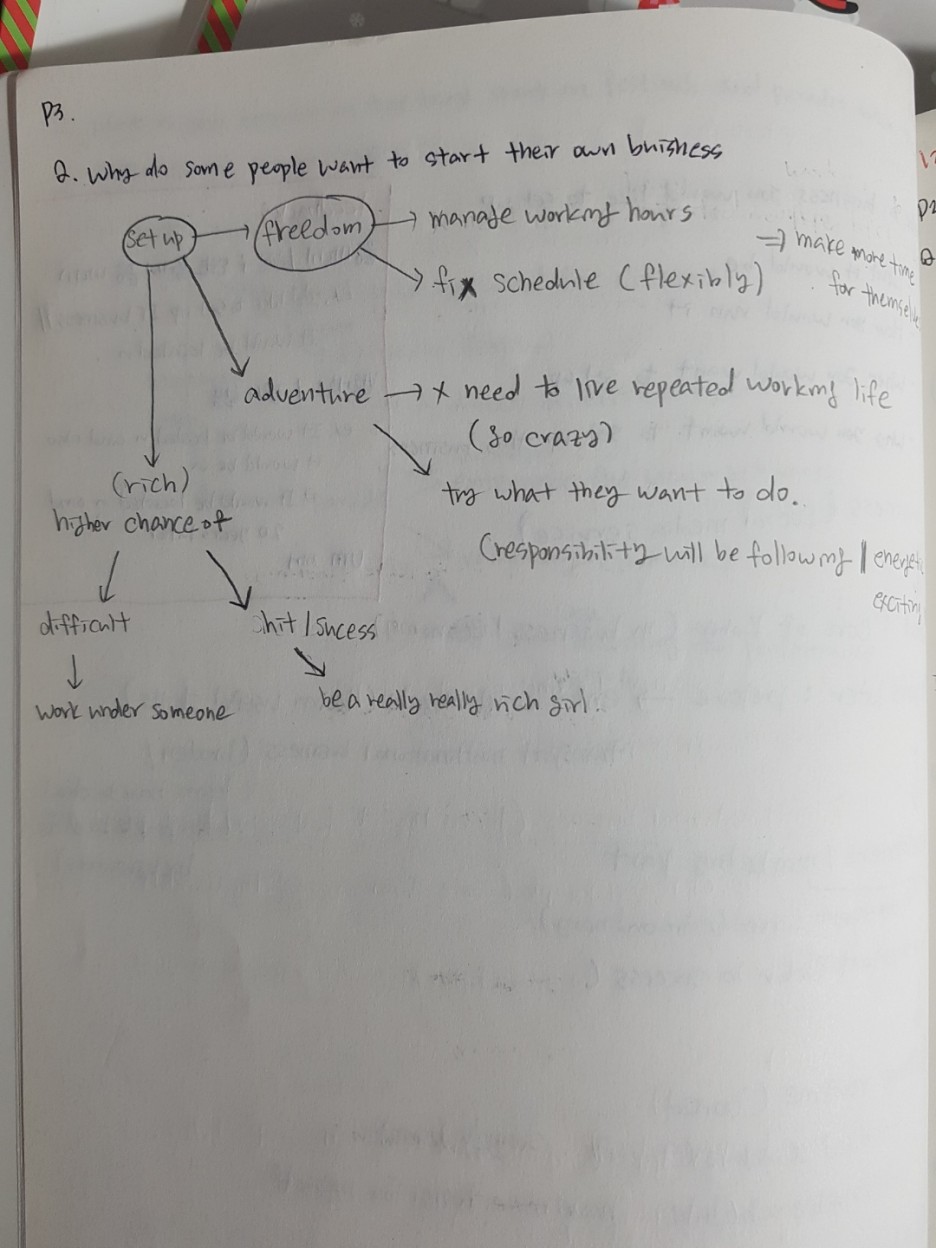 P3.
Q. Why do some people want to start their own buisness
set up → freedom → manage working hours
→ fix schedule (flexibly)
⇒ make more time
for themselve
adventure → x need to live repeated working life
(so crazy)
try what they want to do.
(responsibility will be following / energetic
exciting
(rich)
higher chance of
difficult
hit / sucess
work under someone
be a really really rich girl.